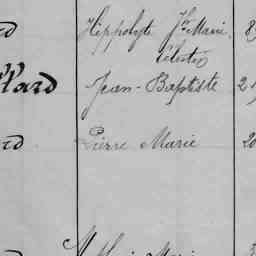 rd Hippolyte Jh Marie 8
Célestin
llard Jean-Baptiste 2
rd Pierre Marie 20
Marie